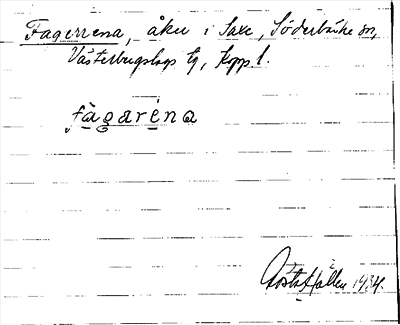 Fagerrena, åker i Saxe, Söderbärke sn,
Västerbergslags tg, Kopp. l.
fàgaréna
Gösta Hallén 1934.